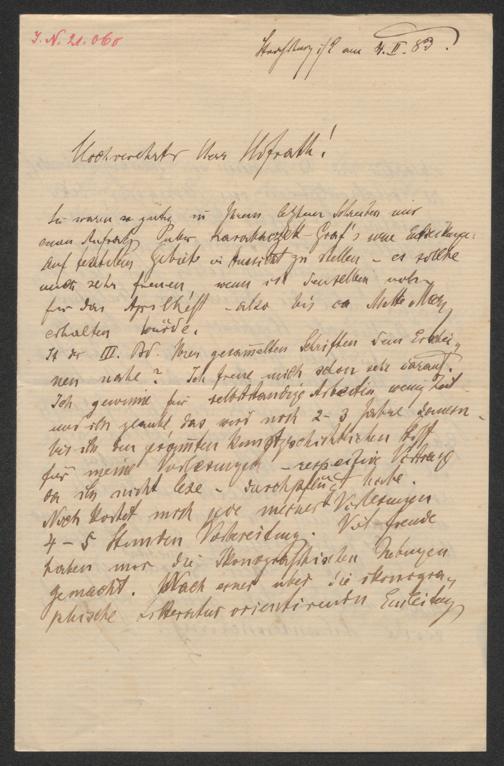 J. N. 21.060
Strassburg i/E am 4. II. 83.
Hochverehrter Herr Hofrath!
Sie waren so gütig in Ihrem letzten Schreiben mir
einen Aufsatz über Graf's neue
auf Gebiete in Aussicht zu stellen – es sollte
mich sehr freuen, wenn ich denselben noch
für das Aprilheft – also bis ca Mitte März
erhalten würde.
Ist der III. Bd. Ihrer gesammelten Schriften dem Erschei-
nen nahe? Ich freue mich schon sehr darauf.
Ich gewinne für selbstständige Arbeiten wenig Zeit
und ich glaube das wird noch 2–3 Jahre dauern –
bis ich den gesammten kunstgeschichtlichen Stoff
für meine Vorlesungen – respective Vorträge
da ich nicht lese – durchpflügt habe.
Noch kostet mich jede meiner Vorlesungen
4–5 Stunden Vorbereitung. Viel Freude
haben mir die Ikonographischen Uebungen
gemacht. Nach einer über die ikonogra-
phische Litteratur orientirenden Einleitung